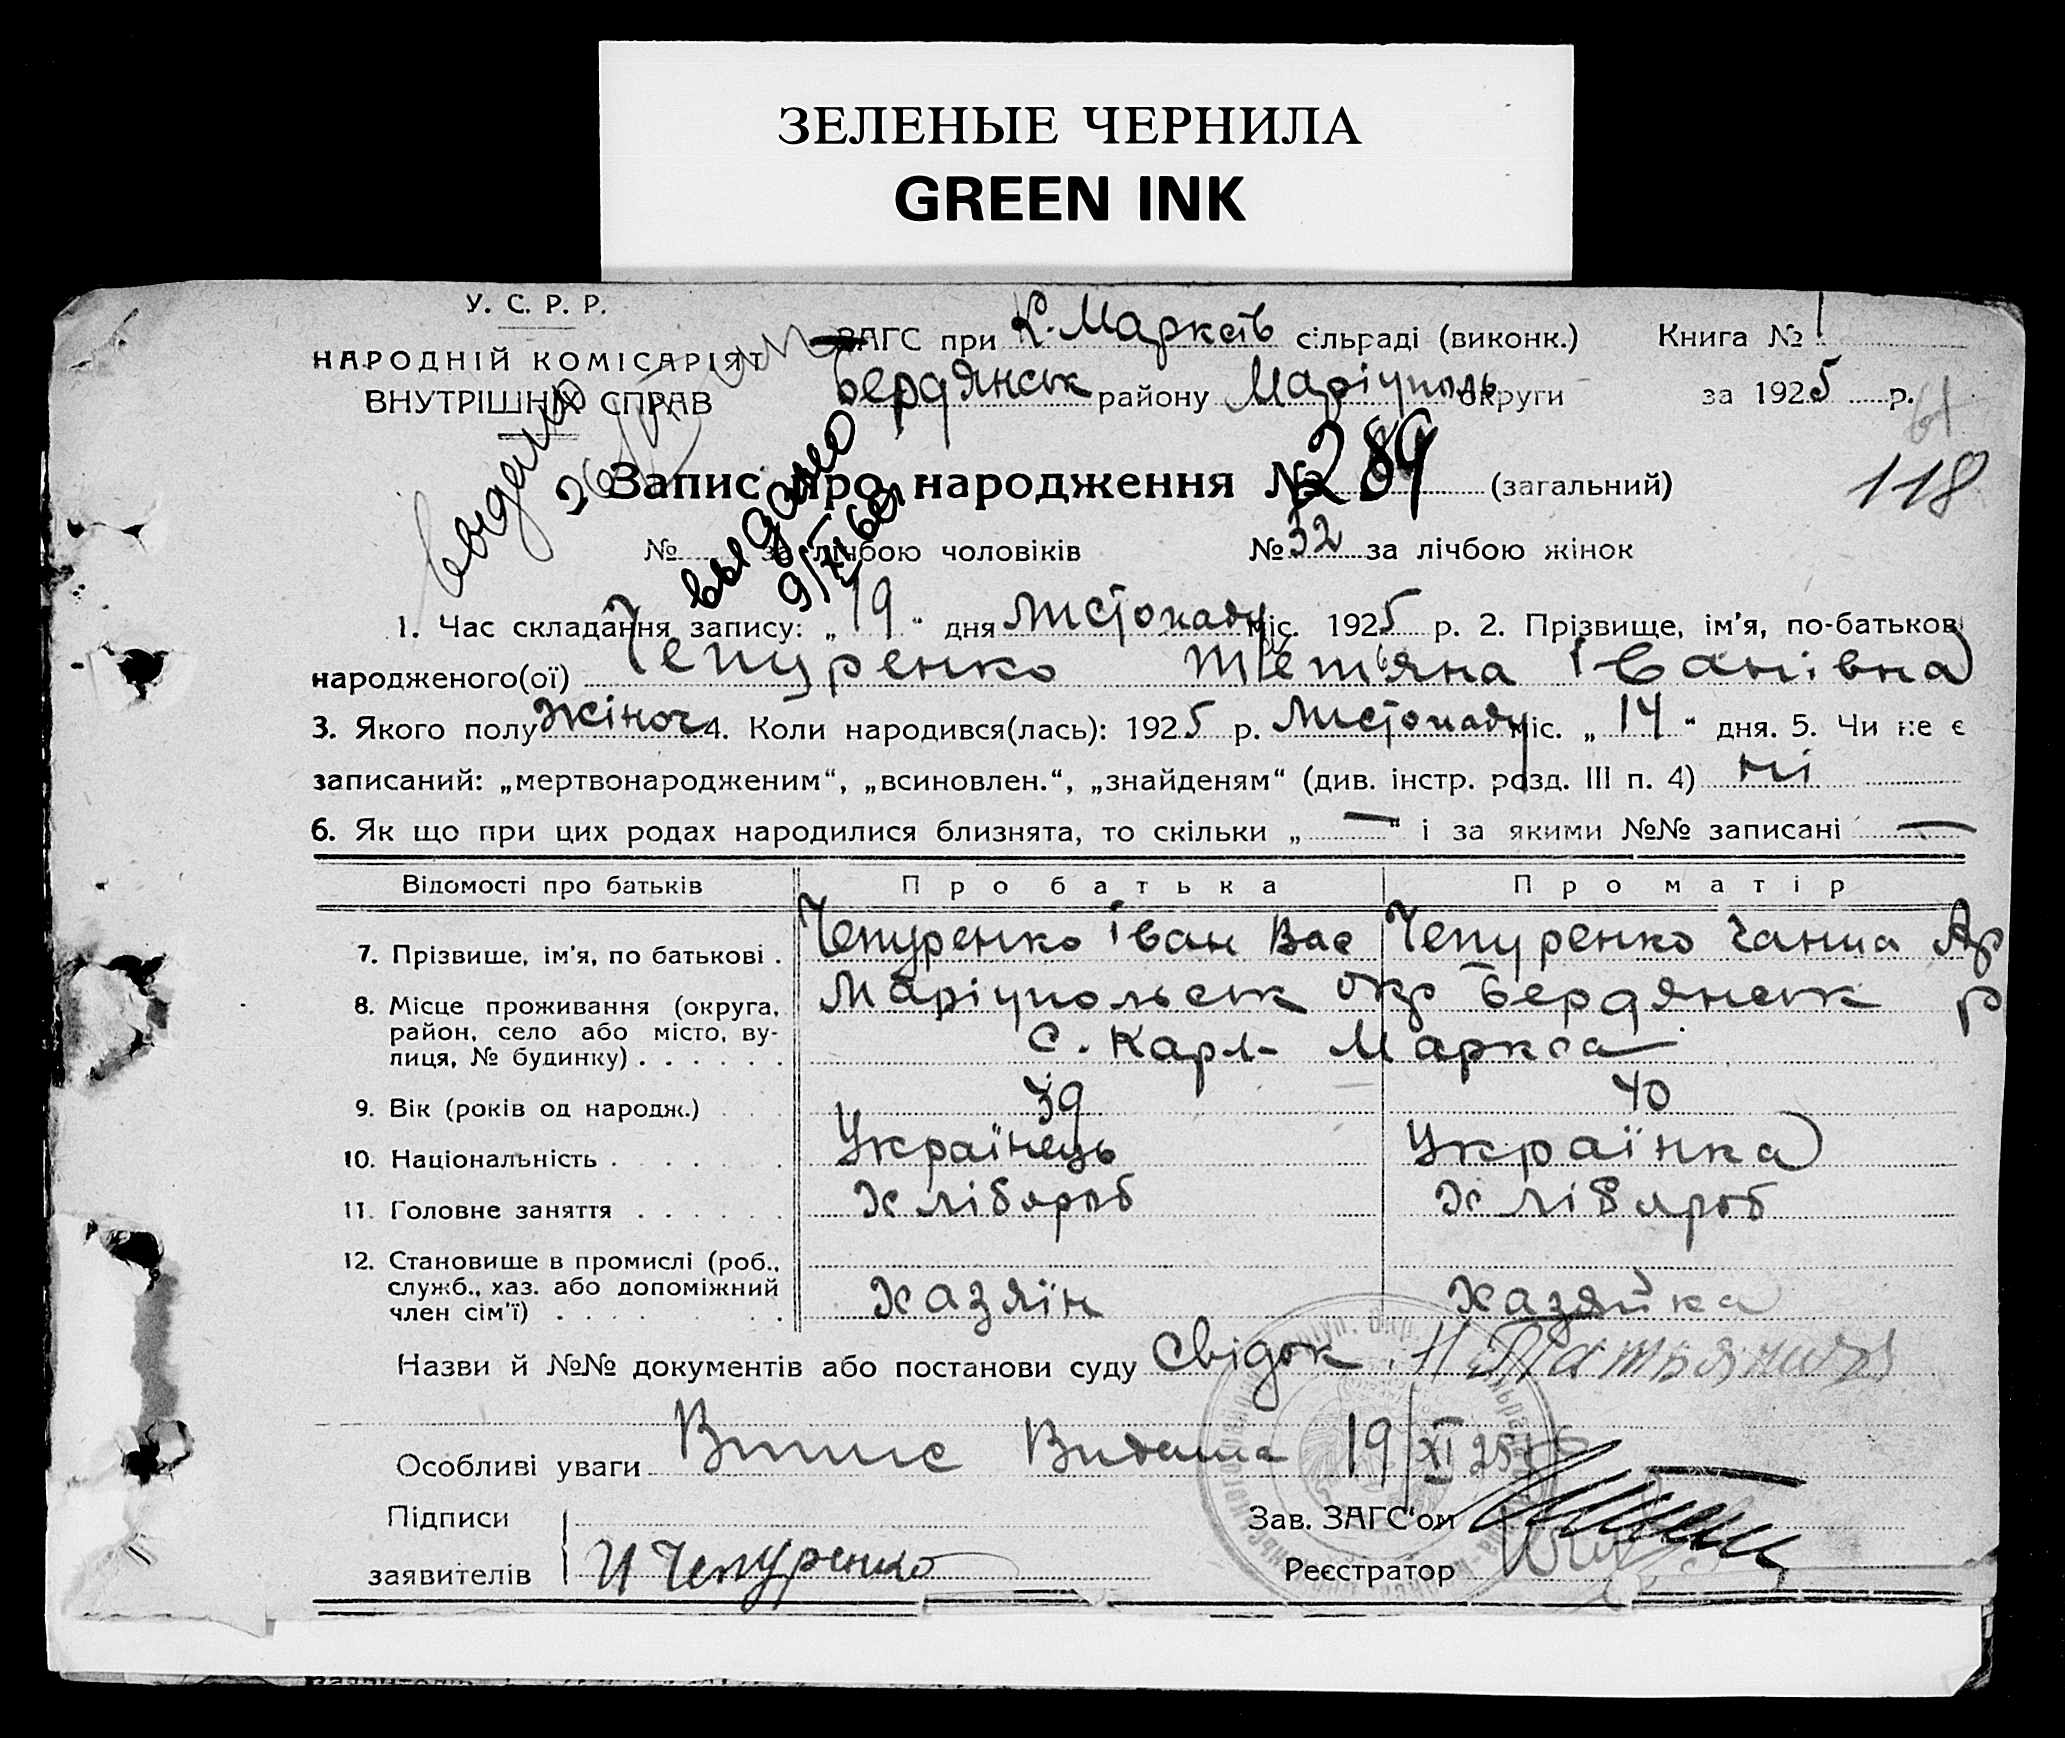 ЗЕЛЕНЫЕ ЧЕРНИЛА
GREEN INK
У. С. Р. Р.
НАРОДНІЙ КОМІСАРІЯТ
ВНУТРІШНІХ СПРАВ
ЗАГС при К. Марксів сільраді (виконк.) Книга № 1
Бердянськ району Маріуполь округи за 1925 р.
61
118
видано
выдано
Запис про народження № 289 (загальний)
№ за лічбою чоловіків № 32 за лічбою жінок
1. Час складання запису: „19“ дня листопаду міс. 1925 р. 2. Прізвище, ім'я, по-батькові
народженого(ої) Чепуренко Тетяна Іванівна
3. Якого полу жіноч 4. Коли народився(лась): 1925 р. листопаду міс. „14“ дня. 5. Чи не є
записаний: „мертвонародженим“, „всиновлен.“, „знайденям“ (див. інстр. розд. III п. 4) ні
6. Як що при цих родах народилися близнята, то скільки „—“ і за якими №№ записані —
Відомості про батьків Про батька Про матір
7. Прізвище, ім'я, по батькові . Чепуренко Іван Вас Чепуренко Ганна Ар
8. Місце проживання (округа, Маріупольськ окр Бердянськ р
район, село або місто, ву- с. Карл- Маркса
лиця, № будинку) . . . . . .
9. Вік (років од народж.) . . . 39 40
10. Національність . . . . . . Українець Українка
11. Головне заняття . . . . . . Хлібороб Хлібороб
12. Становище в промислі (роб.,
служб., хаз. або допоміжний
член сім'ї) . . . . . . Хазяїн Хазяйка
Назви й №№ документів або постанови суду Свідок
Особливі уваги Випис Видана 19/XI 25
Підписи Зав. ЗАГС'ом
заявителів И Чепуренко Реєстратор